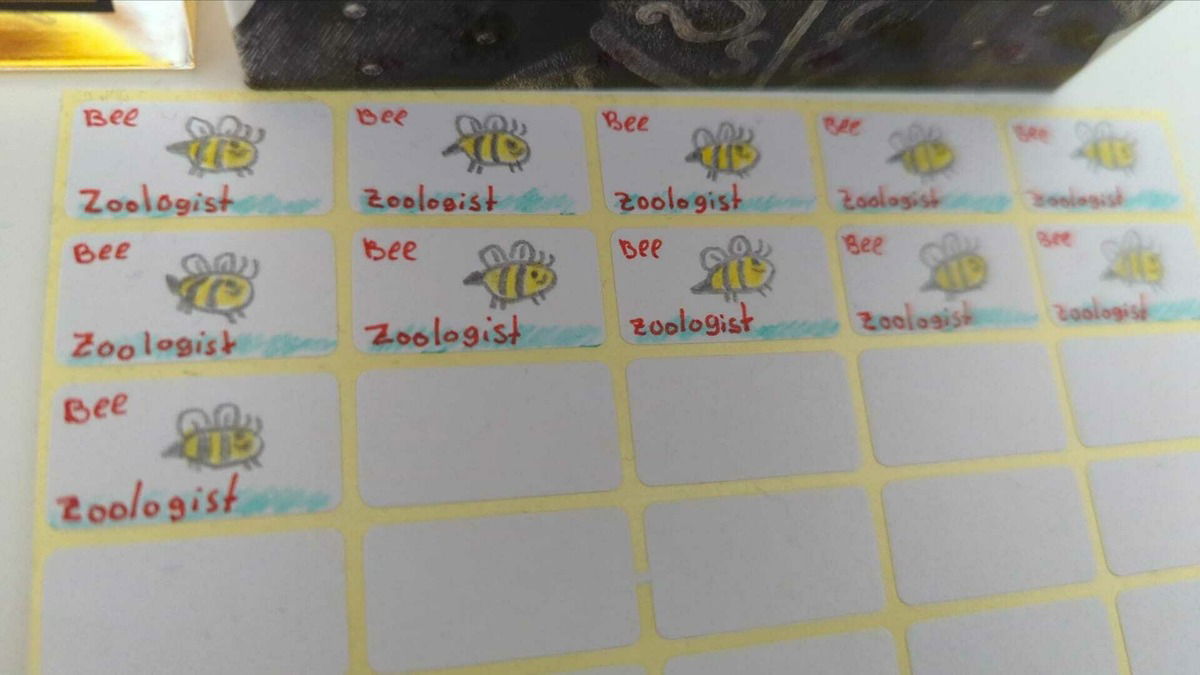 Bee
Zoologist
Bee
Zoologist
Bee
Zoologist
Bee
Zoologist
Bee
Zoologist
Bee
Zoologist
Bee
Zoologist
Bee
zoologist
Bee
Zoologist
Bee
Zoologist
Bee
Zoologist